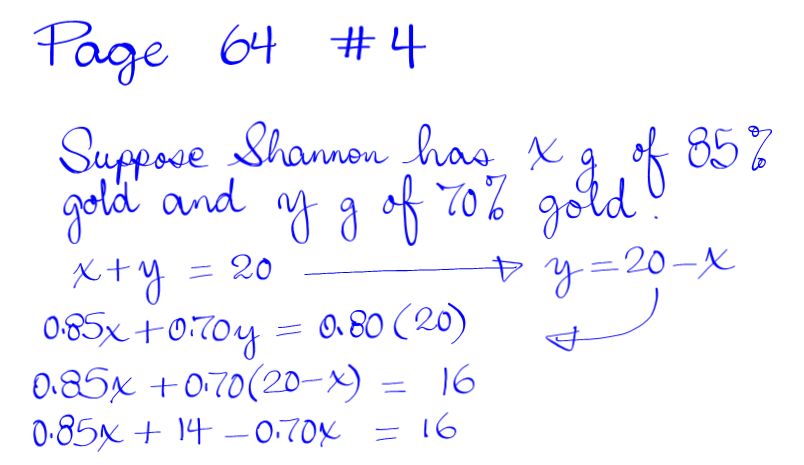 Page 64 #4
Suppose Shannon has x g of 85%
gold and y g of 70% gold.
x+y = 20 → y=20-x
0.85x+0.70y = 0.80(20)
0.85x +0.70(20-x) = 16
0.85x + 14 -0.70x = 16